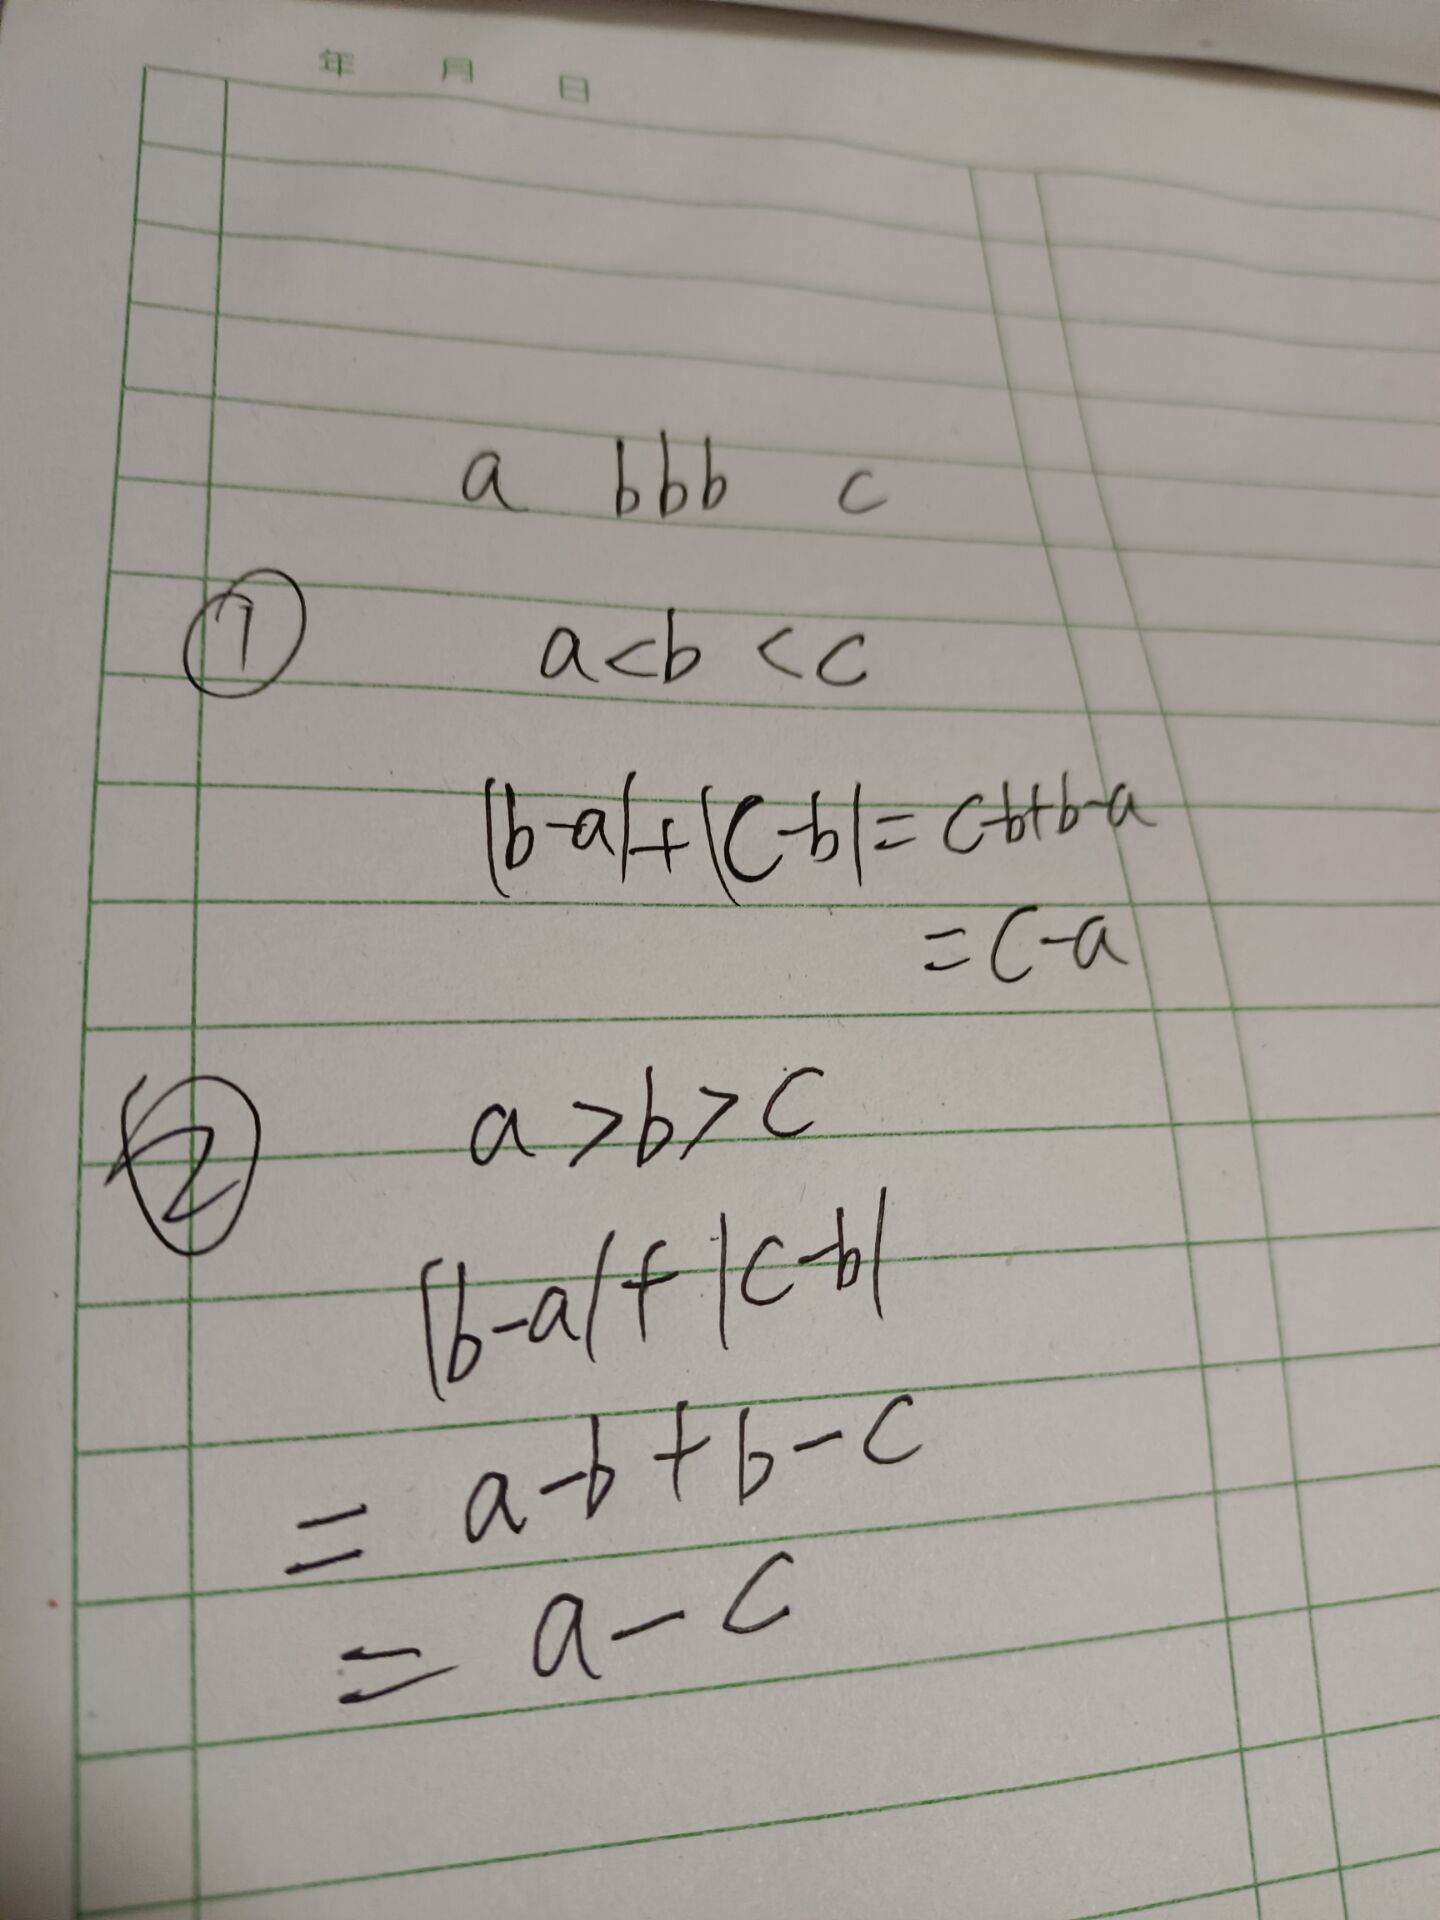 年 月 日
a bbb c
① a<b<c
|b-a|+|c-b|=c-b+b-a
=c-a
② a>b>c
|b-a|+|c-b|
= a-b+b-c
= a-c